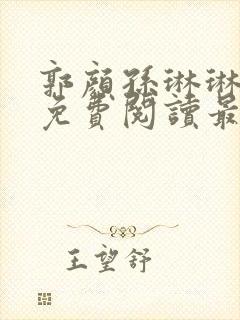 郭顏孫琳琳
免費閱讀最
王望舒